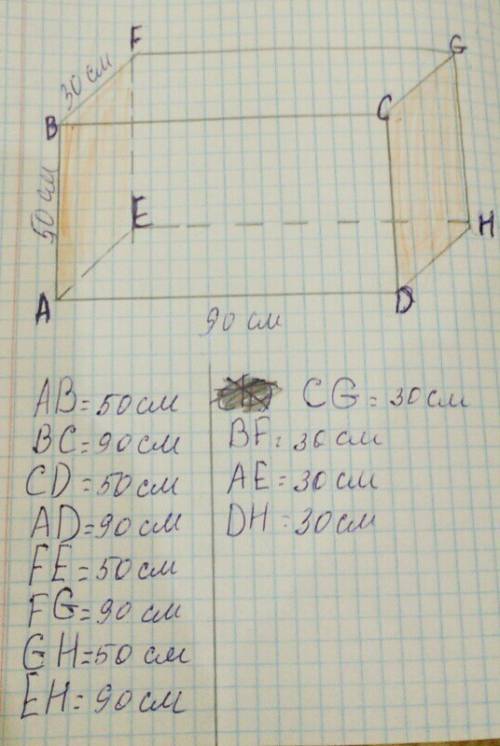 F
G
30 см
B
C
50 см
E
H
A
D
90 см
AB=50см
BC=90см
CD=50см
AD=90см
FE=50см
FG=90см
GH=50см
EH=90см
CG=30см
BF=30см
AE=30см
DH=30см